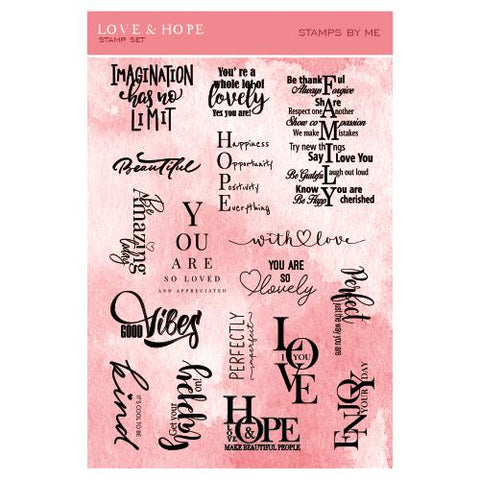 LOVE & HOPE
STAMP SET
STAMPS BY ME
IMAGINATION
has no
LIMIT
You' re a
whole lot of
lovely
Yes you are!
Be thank Ful
Always Forgive
ShAre
Respect one Another
Show coMpassion
We make MIstakes
Try new thIngs
Say I Love You
Be Grateful Laugh out loud
Know You are
Be Happy cherished
Beautiful
Happiness
Opportunity
Positivity
Everything
Be
Amazing
today
YOU
ARE
SO LOVED
AND APPRECIATED
with love
YOU ARE
SO
lovely
Perfect
just the way you are
GOOD Vibes
PERFECTLY
imperfect
LOVE
I YOU
ENJOY
YOUR DAY
kind
IT'S COOL TO BE
Get your
happy
on!
HOPE
LOVE &
MAKE BEAUTIFUL PEOPLE